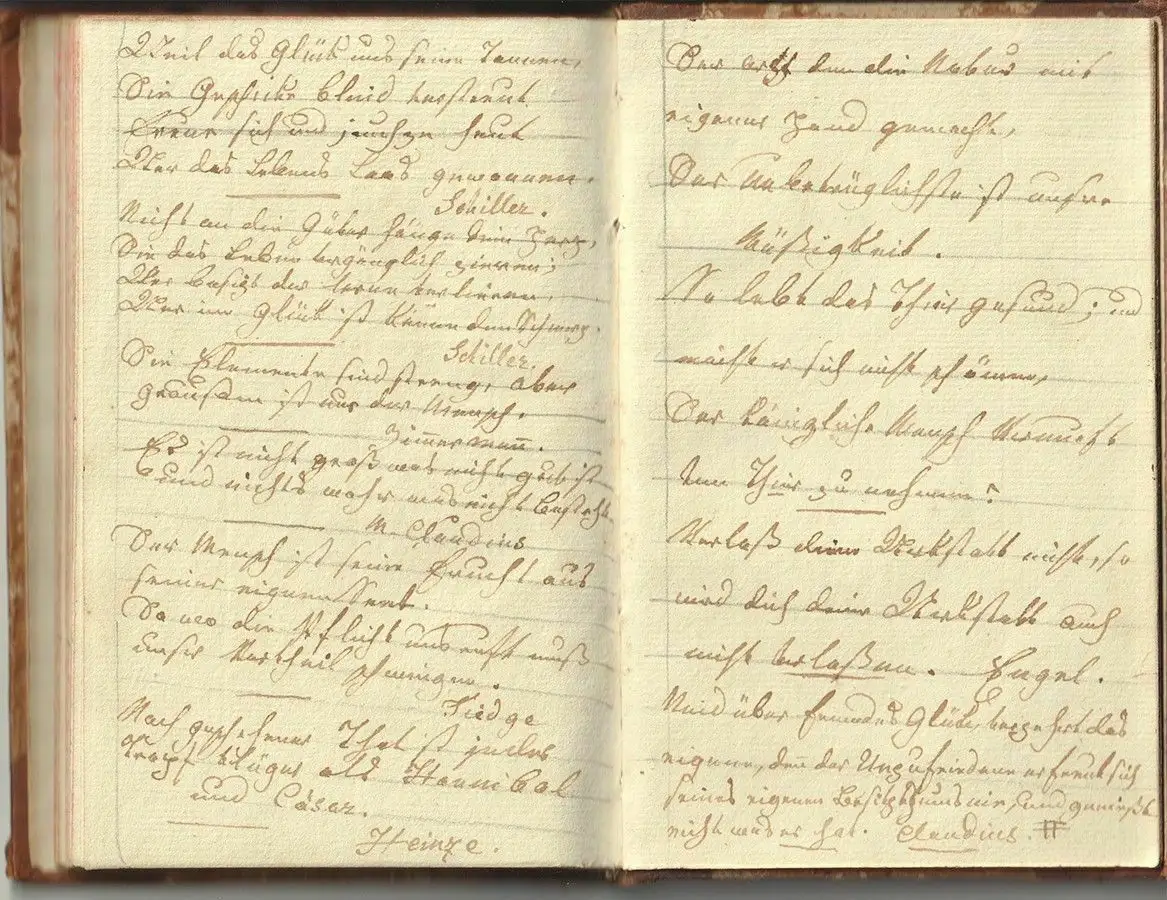 Weil das Glük aus seinen Tonnen,
Die Geschicke blind verstreut
Freue sich und jauchze heut
Wer das Lebens Loos gewonnen.
Schiller.
Nicht an die Güter hänge dein Herz,
Die das Leben vergänglich zieren;
Wer besizt der lerne verlieren,
Wer im Glück ist lerne den Schmerz.
Schiller.
Die Elemente sind streng, aber
grausam ist nur der Mensch.
Zimmermann.
Es ist nicht groß was nicht gut ist
und nichts wahr was nicht besteht.
M. Claudius
Der Mensch ist seine Frucht aus
seiner eignen Saat.
Da wo die Pflicht uns ruft muß
unser Vortheil schweigen.
Tiedge
Nach geschehener That ist jeder
Tropf klüger als Hannibal
und Cäsar.
Heinze.
Der Arzt den die Natur mit
eigener Hand gemacht,
Der Unbetrüglichste ist unsre
Mäßigkeit.
So lebt das Thier gesund; und
möchte er sich nicht schämen,
Der königliche Mensch Vernunft
vom Thier zu nehmen?
Verlaß deine Werkstatt nicht, so
wird dich deine Werkstatt auch
nicht verlaßen. Engel.
Neid über fremdes Glük, verzehrt das
eigene, den der Unzufriedene erfreut sich
seines eigenen Besitzthums nie, und genießt
nicht was er hat. Claudius.